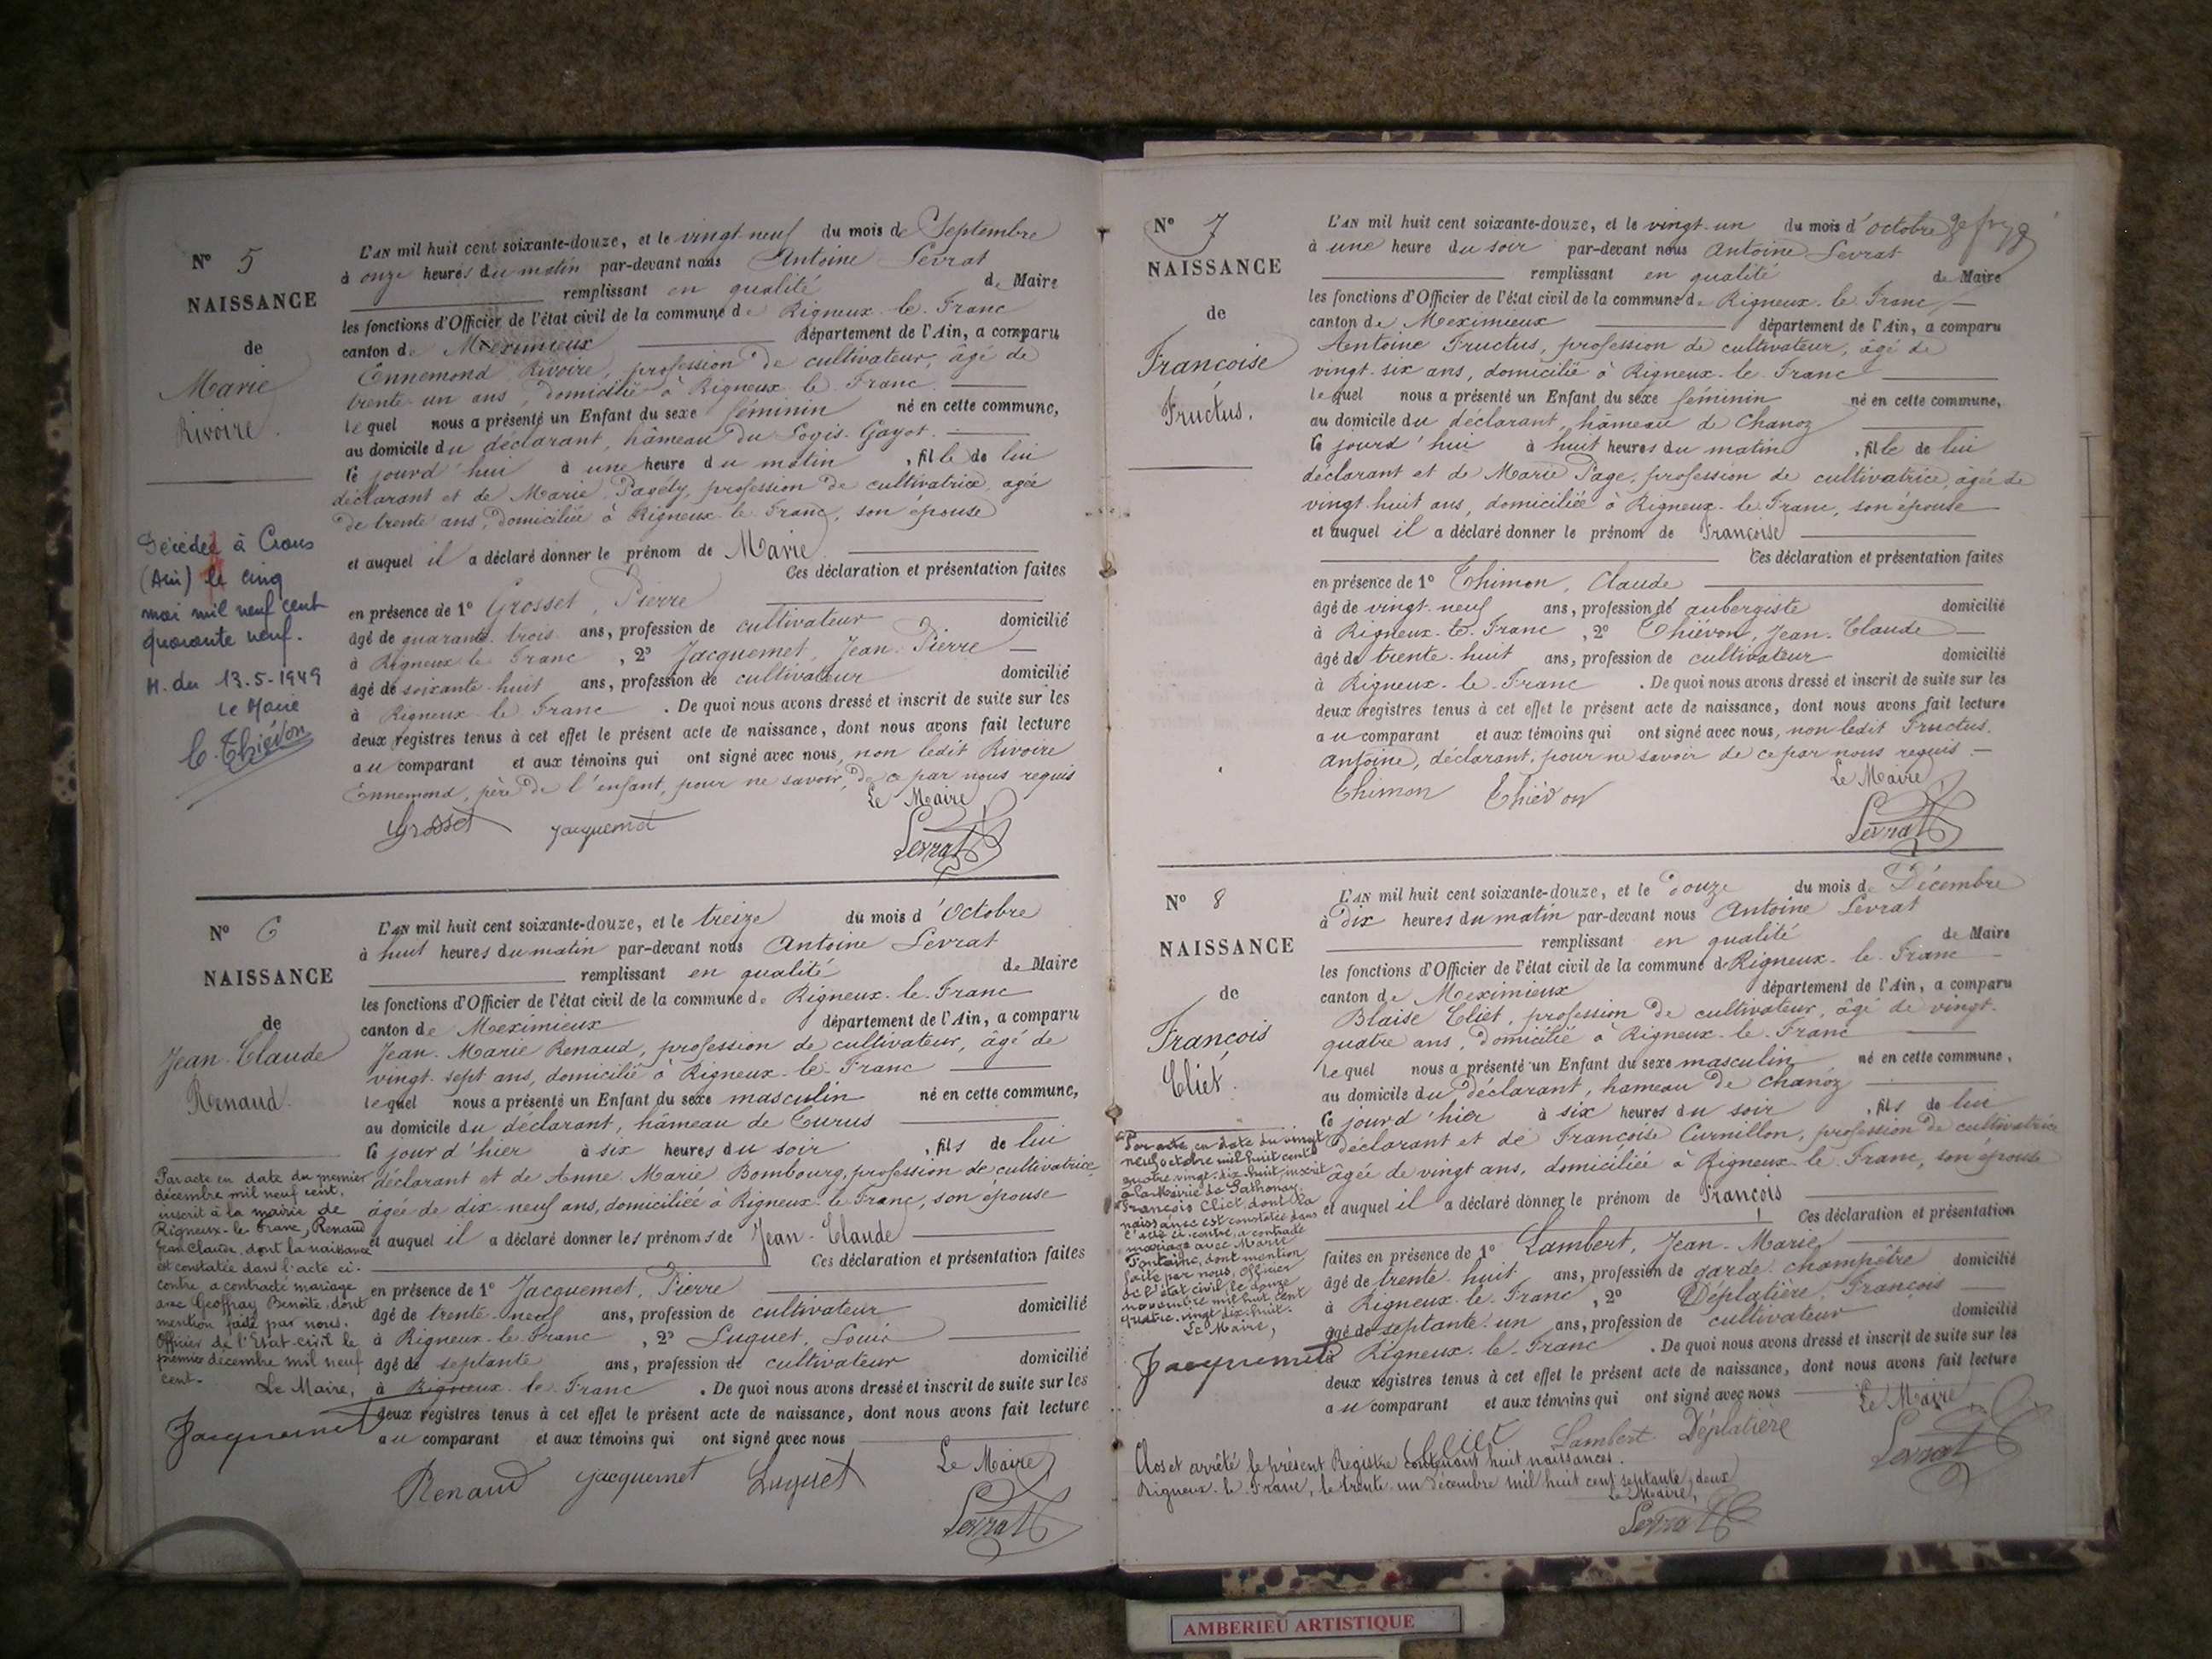 N° 5
NAISSANCE
de
Marie
Rivoire.
Décédée à Crans
(Ain) le cinq
mai mil neuf cent
quarante neuf.
M. du 13.5-1949
Le Maire
C. Thiévon
L'AN mil huit cent soixante-douze, et le vingt-neuf du mois de Septembre
à onze heures du matin par-devant nous Antoine Levrat
remplissant en qualité de Maire
les fonctions d'Officier de l'état civil de la commune de Rigneux-le-Franc
canton de Meximieux département de l'Ain, a comparu
Ennemond Rivoire, profession de cultivateur, âgé de
trente-un ans, domicilié à Rigneux-le-Franc.
lequel nous a présenté un Enfant du sexe féminin né en cette commune,
au domicile du déclarant, hâmeau du Logis-Gayot.
ce jourd'hui à une heure du matin, fille de lui
déclarant et de Marie Pagéty, profession de cultivatrice, âgée
de trente ans, domiciliée à Rigneux-le-Franc, son épouse
et auquel il a déclaré donner le prénom de Marie
Ces déclaration et présentation faites
en présence de 1° Grosset, Pierre
âgé de quarante-trois ans, profession de cultivateur domicilié
à Rigneux-le-Franc, 2° Jacquemet, Jean-Pierre
âgé de soixante-huit ans, profession de cultivateur domicilié
à Rigneux-le-Franc. De quoi nous avons dressé et inscrit de suite sur les
deux registres tenus à cet effet le présent acte de naissance, dont nous avons fait lecture
au comparant et aux témoins qui ont signé avec nous, non ledit Rivoire
Ennemond, père de l'enfant, pour ne savoir, de ce par nous requis
Le Maire
Grosset Jacquemet Levrat
N° 6
NAISSANCE
de
Jean-Claude
Renaud.
Par acte en date du premier
décembre mil neuf cent,
inscrit à la mairie de
Rigneux-le-Franc, Renaud
Jean Claude, dont la naissance
est constatée dans l'acte ci-
contre a contracté mariage
avec Geoffray Benoite, dont
mention faite par nous,
Officier de l'Etat-civil le
premier décembre mil neuf
cent.
Le Maire,
Jacquemet
L'AN mil huit cent soixante-douze, et le treize du mois d'Octobre
à huit heures du matin par-devant nous Antoine Levrat
remplissant en qualité de Maire
les fonctions d'Officier de l'état civil de la commune de Rigneux-le-Franc
canton de Meximieux département de l'Ain, a comparu
Jean-Marie Renaud, profession de cultivateur, âgé de
vingt-sept ans, domicilié à Rigneux-le-Franc
lequel nous a présenté un Enfant du sexe masculin né en cette commune,
au domicile du déclarant, hâmeau de Curus
ce jour d'hier à six heures du soir, fils de lui
déclarant et de Anne Marie Bombourg, profession de cultivatrice
âgée de dix-neuf ans, domiciliée à Rigneux-le-Franc, son épouse
et auquel il a déclaré donner les prénoms de Jean-Claude
Ces déclaration et présentation faites
en présence de 1° Jacquemet, Pierre
âgé de trente-neuf ans, profession de cultivateur domicilié
à Rigneux-le-Franc, 2° Luquet, Louis
âgé de septante ans, profession de cultivateur domicilié
à Rigneux-le-Franc. De quoi nous avons dressé et inscrit de suite sur les
deux registres tenus à cet effet le présent acte de naissance, dont nous avons fait lecture
au comparant et aux témoins qui ont signé avec nous
Le Maire
Renaud Jacquemet Luquet Levrat
N° 7
NAISSANCE
de
Françoise
Fructus.
L'AN mil huit cent soixante-douze, et le vingt-un du mois d'octobre
à une heure du soir par-devant nous Antoine Levrat
remplissant en qualité de Maire
les fonctions d'Officier de l'état civil de la commune de Rigneux-le-Franc
canton de Meximieux département de l'Ain, a comparu
Antoine Fructus, profession de cultivateur, âgé de
vingt-six ans, domicilié à Rigneux-le-Franc
lequel nous a présenté un Enfant du sexe féminin né en cette commune,
au domicile du déclarant, hâmeau de Chanoz
ce jourd'hui à huit heures du matin, fille de lui
déclarant et de Marie Page, profession de cultivatrice, âgée de
vingt-huit ans, domiciliée à Rigneux-le-Franc, son épouse
et auquel il a déclaré donner le prénom de Françoise
Ces déclaration et présentation faites
en présence de 1° Thimon, Claude
âgé de vingt-neuf ans, profession de aubergiste domicilié
à Rigneux-le-Franc, 2° Thiévon, Jean-Claude
âgé de trente-huit ans, profession de cultivateur domicilié
à Rigneux-le-Franc. De quoi nous avons dressé et inscrit de suite sur les
deux registres tenus à cet effet le présent acte de naissance, dont nous avons fait lecture
au comparant et aux témoins qui ont signé avec nous, non ledit Fructus,
Antoine, déclarant, pour ne savoir de ce par nous requis.
Le Maire
Thimon Thiévon Levrat
N° 8
NAISSANCE
de
François
Cliet.
Par acte en date du vingt
neuf octobre mil huit cent
quatre-vingt-dix-huit inscrit
à la Mairie de Sathonay
François Cliet, dont la
naissance est constatée dans
l'acte ci-contre, a contracté
mariage avec Marie
Fontaine, dont mention
faite par nous, Officier
de l'état civil, le douze
novembre mil huit cent
quatre-vingt-dix-huit.
Le Maire,
Jacquemet
L'AN mil huit cent soixante-douze, et le douze du mois de Décembre
à dix heures du matin par-devant nous Antoine Levrat
remplissant en qualité de Maire
les fonctions d'Officier de l'état civil de la commune de Rigneux-le-Franc
canton de Meximieux département de l'Ain, a comparu
Blaise Cliet, profession de cultivateur, âgé de vingt-
quatre ans, domicilié à Rigneux-le-Franc
lequel nous a présenté un Enfant du sexe masculin né en cette commune,
au domicile du déclarant, hameau de Chanoz
ce jour d'hier à six heures du soir, fils de lui
déclarant et de Françoise Curnillon, profession de cultivatrice
âgée de vingt ans, domiciliée à Rigneux-le-Franc, son épouse
et auquel il a déclaré donner le prénom de François
Ces déclaration et présentation
faites en présence de 1° Lambert, Jean-Marie
âgé de trente-huit ans, profession de garde-champêtre domicilié
à Rigneux-le-Franc, 2° Déplatière, François
âgé de septante-un ans, profession de cultivateur domicilié
à Rigneux-le-Franc. De quoi nous avons dressé et inscrit de suite sur les
deux registres tenus à cet effet le présent acte de naissance, dont nous avons fait lecture
au comparant et aux témoins qui ont signé avec nous
Le Maire
Cliet Lambert Déplatière Levrat
Clos et arrêté le présent Registre contenant huit naissances.
Rigneux-le-Franc, le trente-un décembre mil huit cent septante-deux
Le Maire,
Levrat
AMBERIEU ARTISTIQUE